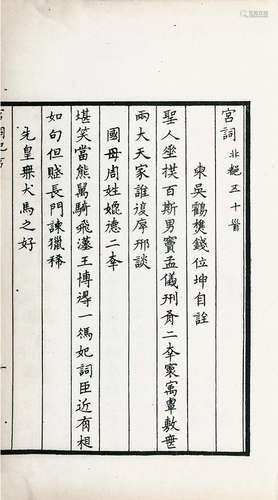 宮詞 北五十首
東吳鶴樵錢位坤自註
聖人坐撲百斯男寶孟儀刑胥二寰寓覃敷世
兩大天家誰復席邢談
國母周姓媲德二
堪笑當熊罵騎飛漢王博得一馮妃詞臣近有相
如句但賦長門諫獵稀
先皇無犬馬之好